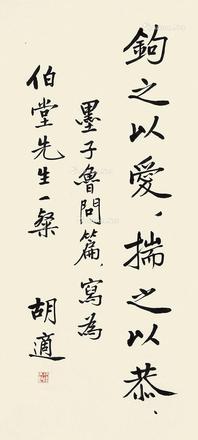 鉤之以愛，揣之以恭，
墨子魯問篇，寫為
伯堂先生一粲
胡適